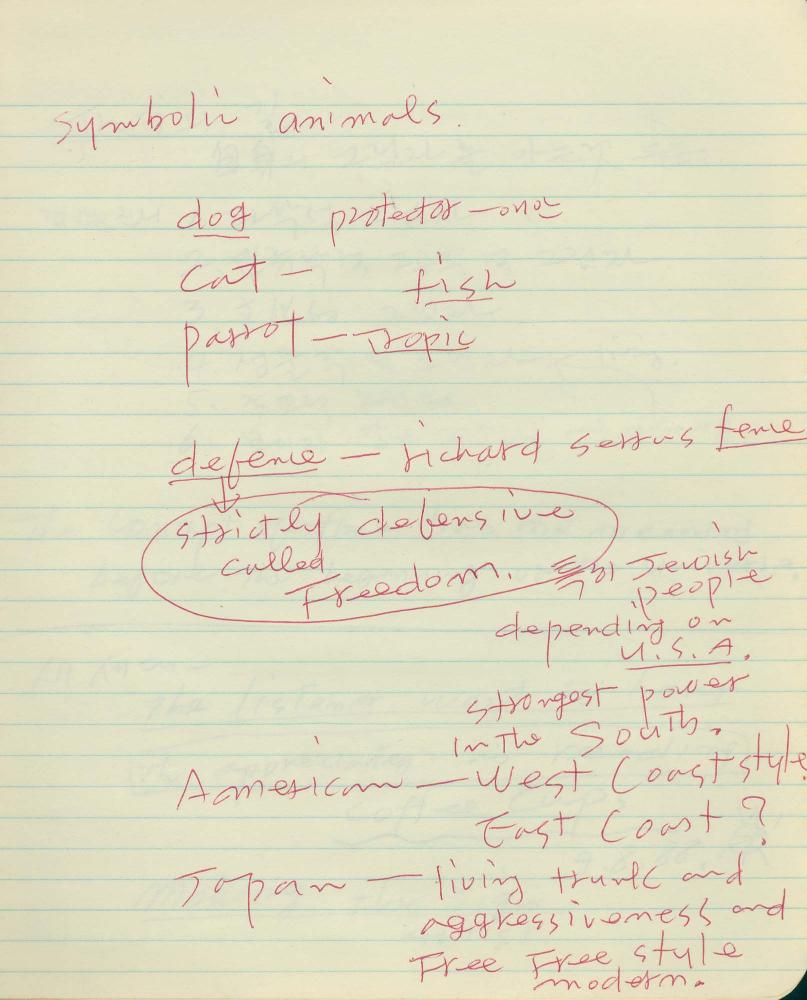 Symbolic animals.
dog protector —애완
Cat — fish
parrot — Tropic
defence — richard serras fence
strictly defensive
called
Freedom. 특히 Jewish
people
depending on
U.S.A.
strongest power
in The South.
American — West Coast style
East Coast ?
Japan — living trunk and
aggressiveness and
Free Free style
modern.